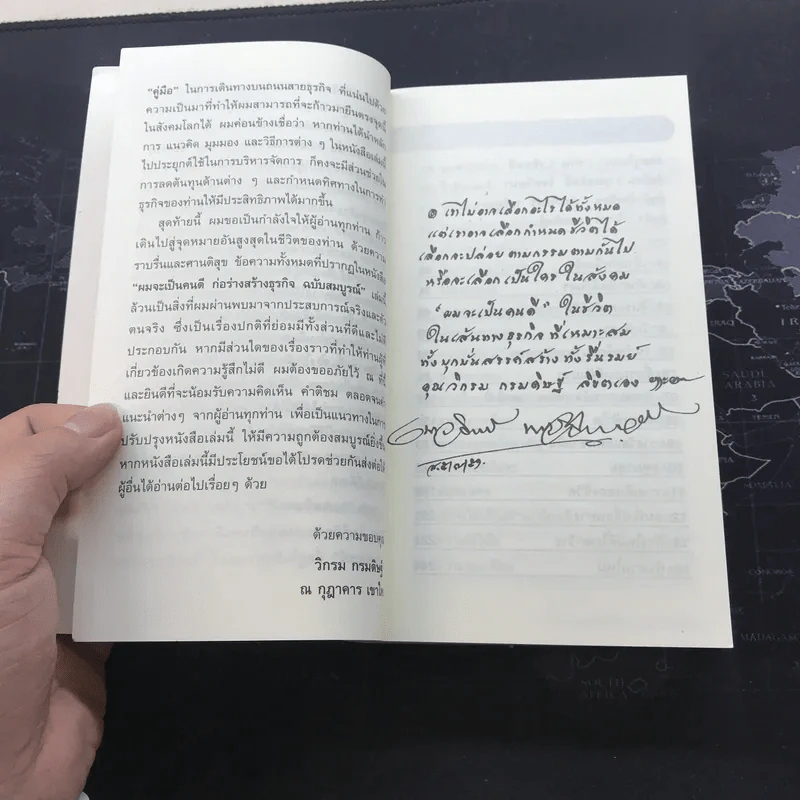 "คู่มือ" ในการเดินทางบนถนนสายธุรกิจ ที่แน่นไปด้วย
ความเป็นมาที่ทำให้ผมสามารถที่จะก้าวมายืนตรงจุดนี้
ในสังคมโลกได้ ผมค่อนข้างเชื่อว่า หากท่านได้นำหลัก
การ แนวคิด มุมมอง และวิธีการต่าง ๆ ในหนังสือเล่มนี้
ไปประยุกต์ใช้ในการบริหารจัดการ ก็คงจะมีส่วนช่วยใน
การลดต้นทุนด้านต่าง ๆ และกำหนดทิศทางในการทำ
ธุรกิจของท่านให้มีประสิทธิภาพได้มากขึ้น
สุดท้ายนี้ ผมขอเป็นกำลังใจให้ผู้อ่านทุกท่าน ก้าว
เดินไปสู่จุดหมายอันสูงสุดในชีวิตของท่าน ด้วยความ
ราบรื่นและศานติสุข ข้อความทั้งหมดที่ปรากฏในหนังสือ
"ผมจะเป็นคนดี ก่อร่างสร้างธุรกิจ ฉบับสมบูรณ์" เล่มนี้
ล้วนเป็นสิ่งที่ผมผ่านพบมาจากประสบการณ์จริงและตัว
ตนจริง ซึ่งเป็นเรื่องปกติที่ย่อมมีทั้งส่วนที่ดีและไม่ดี
ประกอบกัน หากมีส่วนใดของเรื่องราวที่ทำให้ท่านผู้ที่
เกี่ยวข้องเกิดความรู้สึกไม่ดี ผมต้องขออภัยไว้ ณ ที่นี้
และยินดีที่จะน้อมรับความคิดเห็น คำติชม ตลอดจนคำ
แนะนำต่างๆ จากผู้อ่านทุกท่าน เพื่อเป็นแนวทางในการ
ปรับปรุงหนังสือเล่มนี้ ให้มีความถูกต้องสมบูรณ์ยิ่งขึ้น
หากหนังสือเล่มนี้มีประโยชน์ขอได้โปรดช่วยกันส่งต่อให้
ผู้อื่นได้อ่านต่อไปเรื่อยๆ ด้วย
ด้วยความขอบคุณ
วิกรม กรมดิษฐ์
ณ กุฎาคาร เขาใหญ่
เราไม่อาจเลือกอะไรได้ทั้งหมด
แต่เราอาจเลือกกำหนดชีวิตได้
เลือกจะปล่อยตามกรรมตามกันไป
หรือจะเลือกเป็นใครในสังคม
"ผมจะเป็นคนดี" ในชีวิต
ในเส้นทางธุรกิจที่เหมาะสม
ทั้งบุกบั่นสรรค์สร้างทั้งรื่นรมย์
คุณวิกรม กรมดิษฐ์ ลิขิตเอง